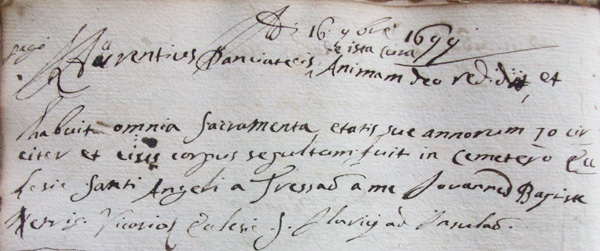 Di 16 9bre 1699
Laurentius Panciatecis de ista cura Animam deo redidit et
habuit omnia Sacramenta etatis sue annorum 70 cir
citer et eius corpus sepultum fuit in Cemetero Ec
lesie Santi Angeli a Tressad a me Jovanne Batista
Vicario Eclesie S.